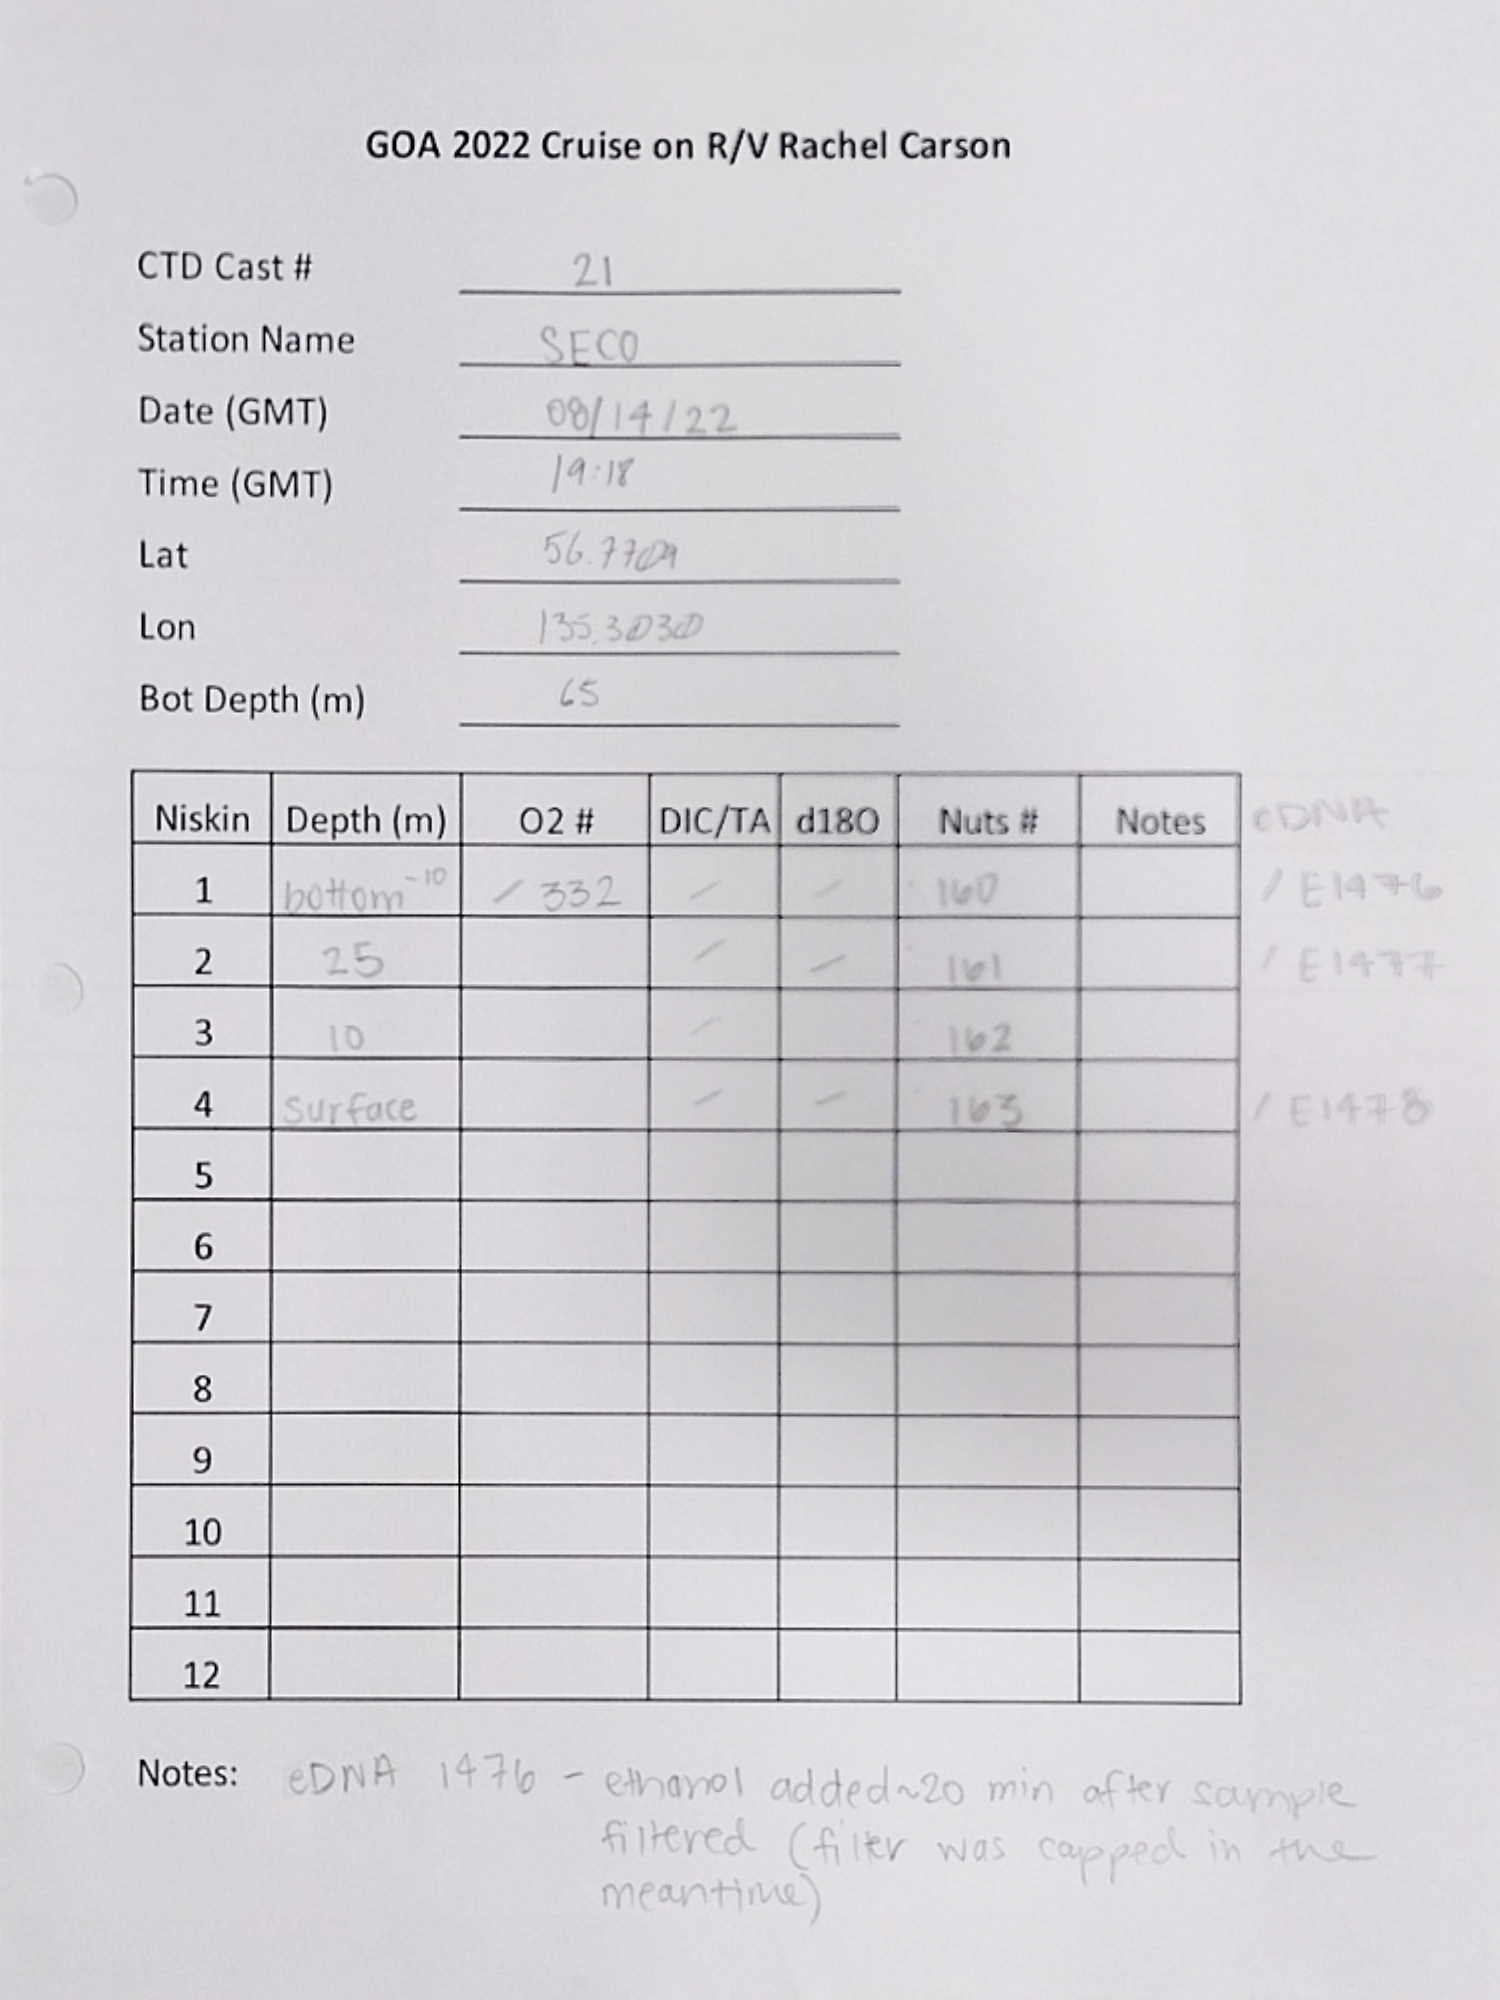 GOA 2022 Cruise on R/V Rachel Carson
CTD Cast # 21
Station Name SECO
Date (GMT) 08/14/22
Time (GMT) 19:18
Lat 56.7709
Lon 135.3030
Bot Depth (m) 65
Niskin Depth (m) O2 # DIC/TA d18O Nuts # Notes eDNA
1 bottom -10 / 332 / / 160 / E1476
2 25 / / 161 / E1477
3 10 / 162
4 surface / / 163 / E1478
5
6
7
8
9
10
11
12
Notes: eDNA 1476 - ethanol added ~20 min after sample
filtered (filter was capped in the
meantime)